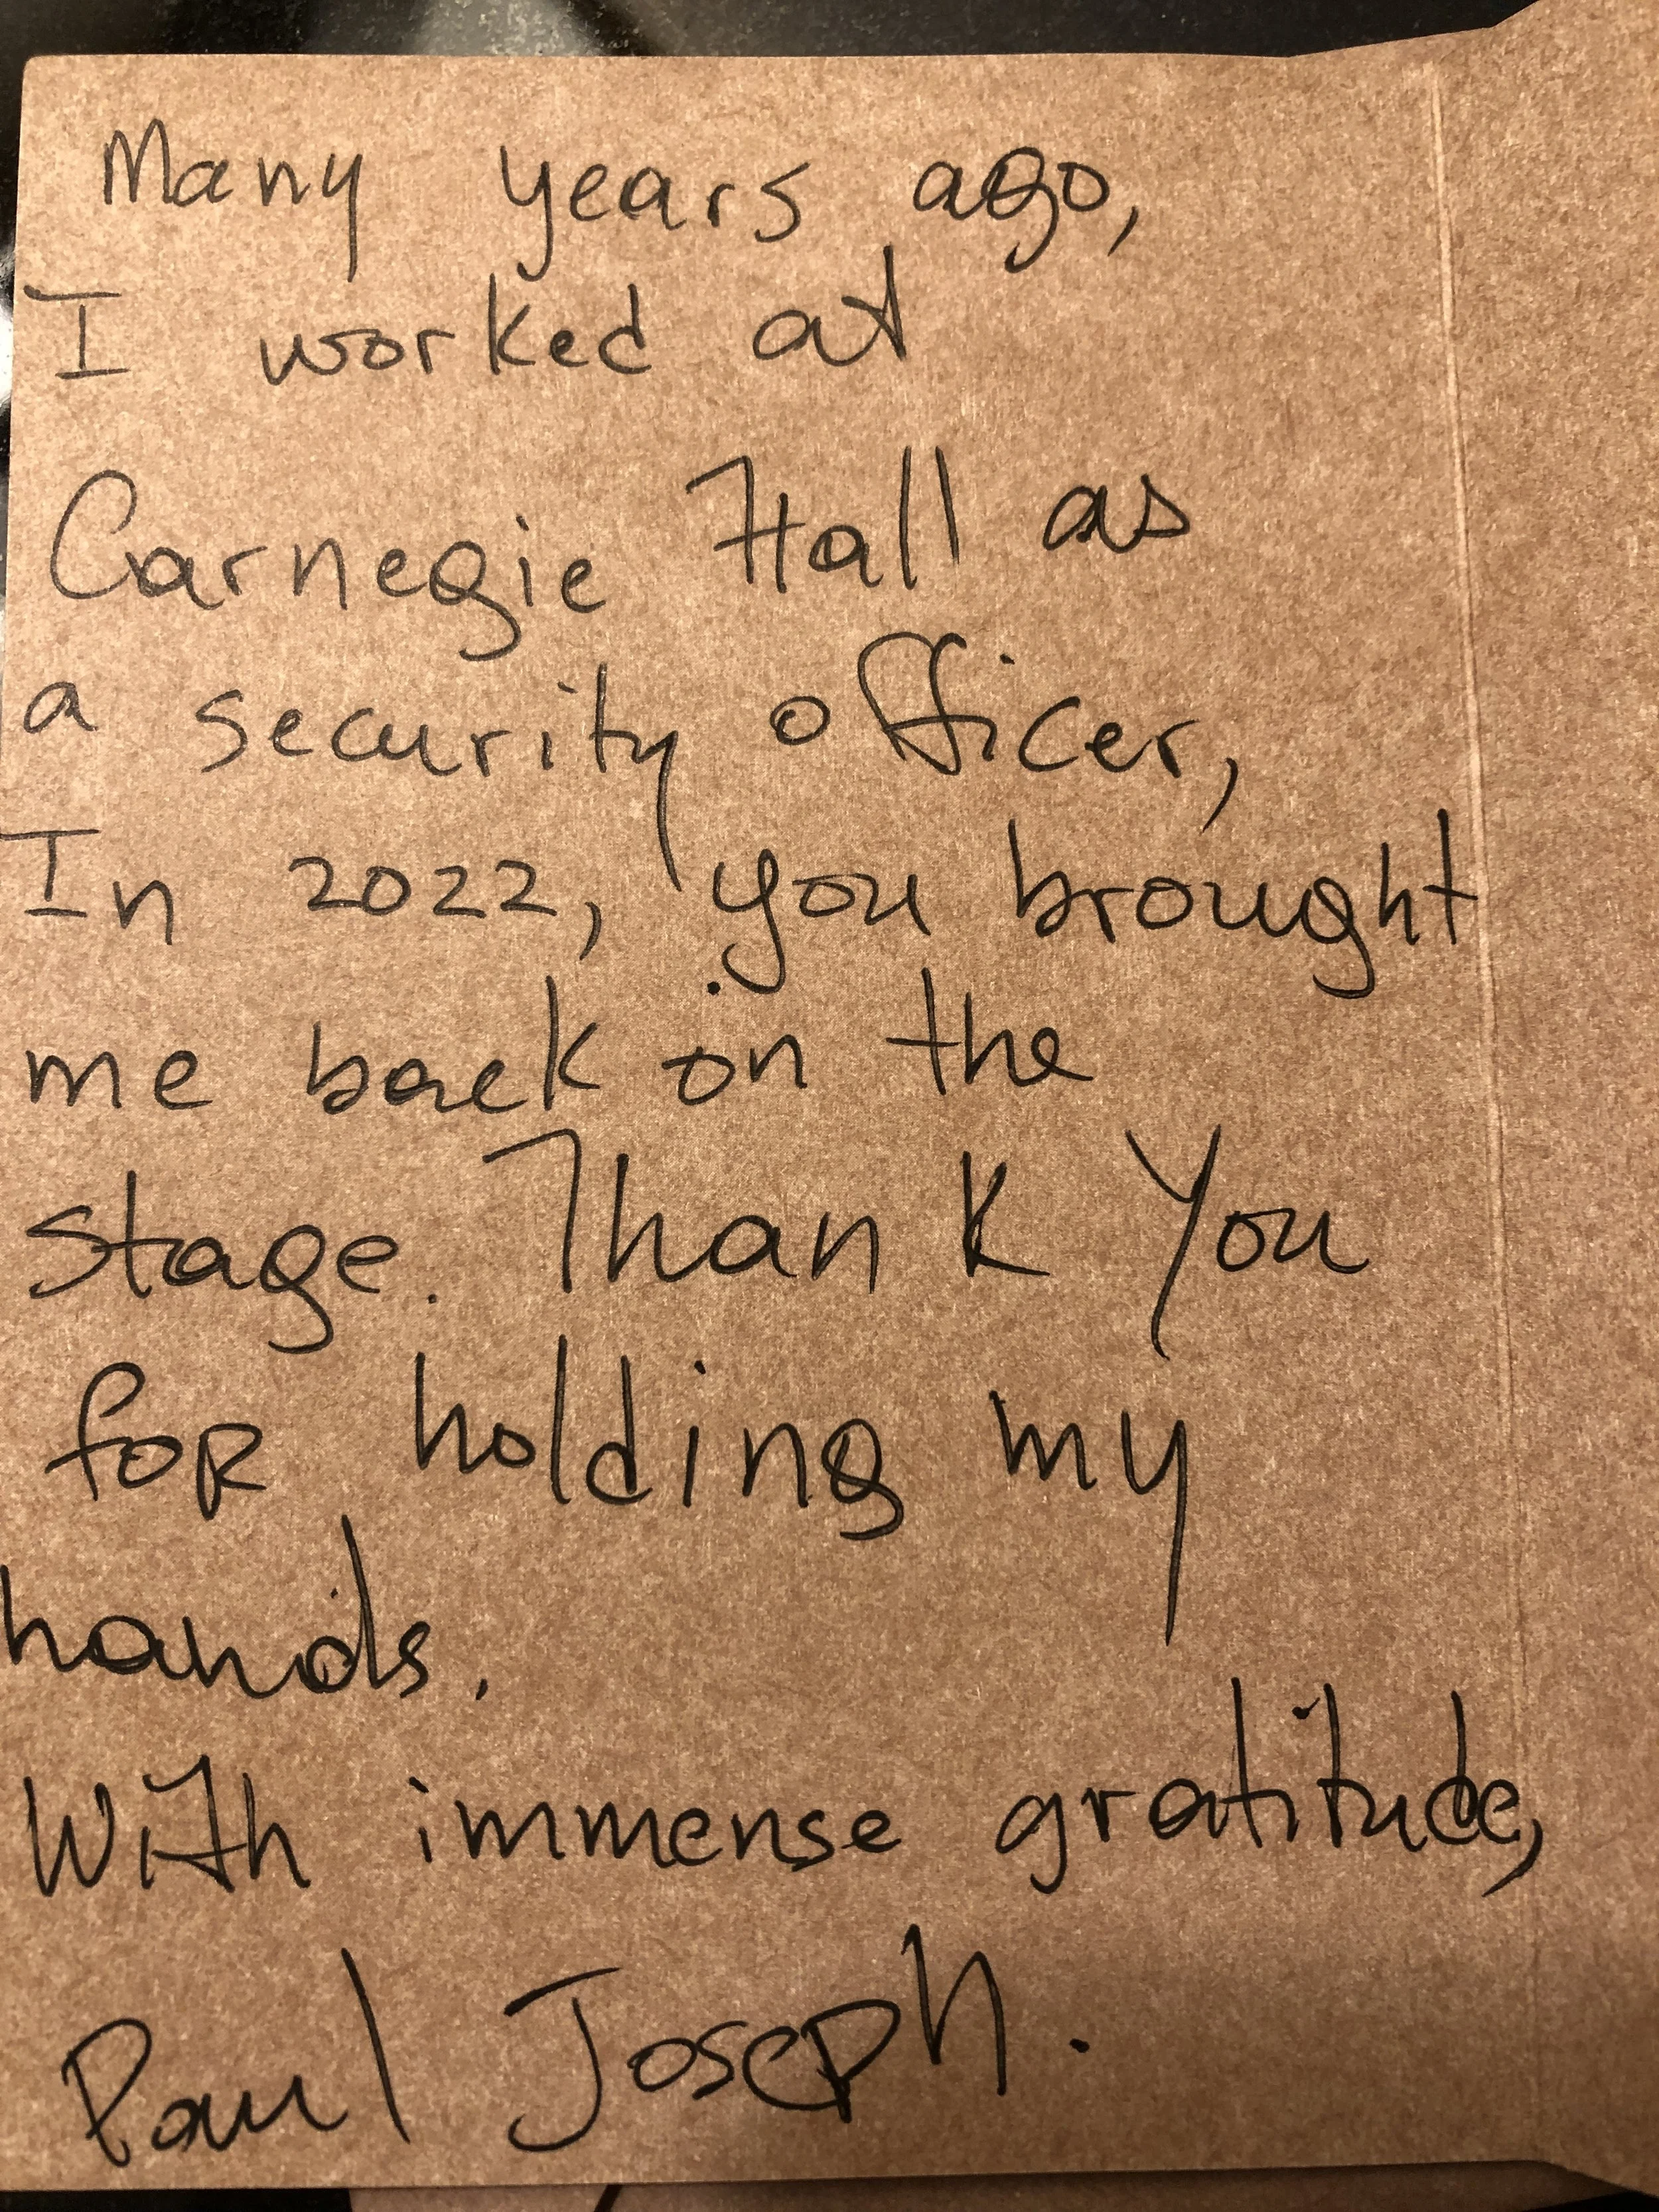 Many years ago,
I worked at
Carnegie Hall as
a security officer,
In 2022, you brought
me back on the
stage. Thank You
for holding my
hands.
With immense gratitude,
Paul Joseph.